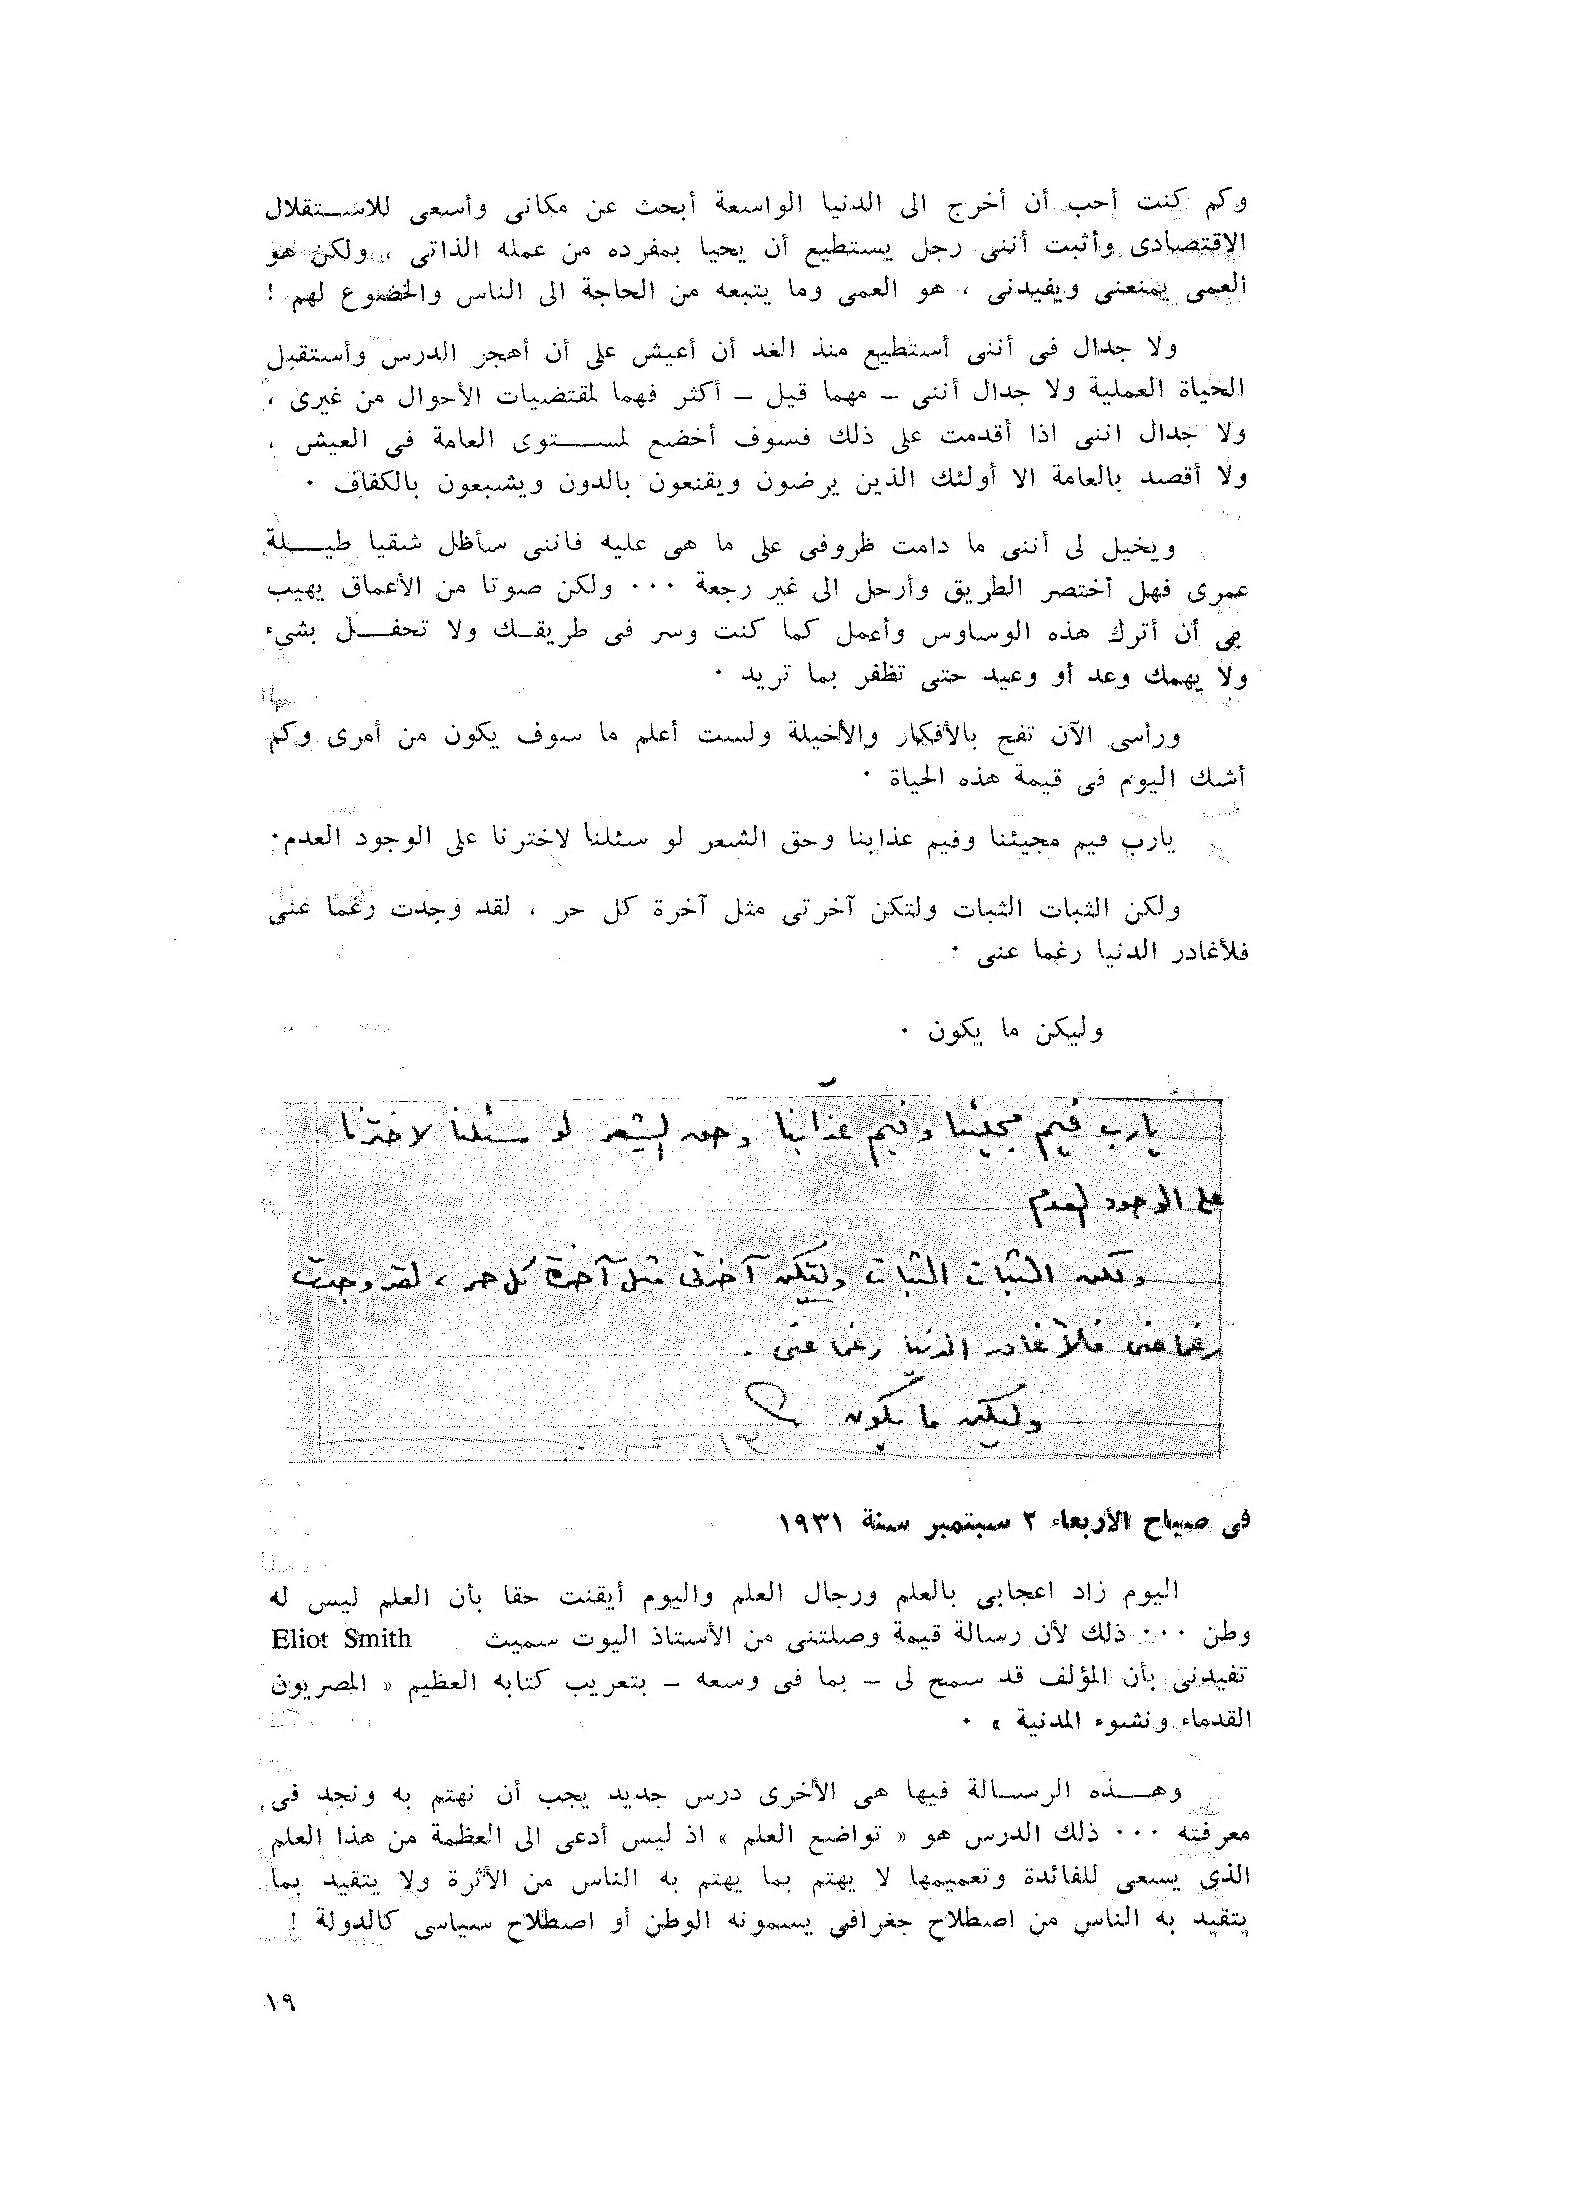 وكم كنت أحب أن أخرج الى الدنيا الواسعة أبحث عن مكانى وأسعى للاستقلال
الاقتصادى وأثبت أننى رجل يستطيع أن يحيا بمفرده من عمله الذاتى ، ولكن هو
العمى يمنعنى ويقيدنى ، هو العمى وما يتبعه من الحاجة الى الناس والخضوع لهم !
ولا جدال فى أننى أستطيع منذ الغد أن أعيش على أن أهجر الدرس وأستقبل
الحياة العملية ولا جدال أننى – مهما قيل – أكثر فهما لمقتضيات الأحوال من غيرى ،
ولا جدال اننى اذا أقدمت على ذلك فسوف أخضع لمستوى العامة فى العيش ،
ولا أقصد بالعامة الا أولئك الذين يرضون ويقنعون بالدون ويشبعون بالكفاف ٠
ويخيل لى أننى ما دامت ظروفى على ما هى عليه فاننى سأظل شقيا طيلة
عمرى فهل أختصر الطريق وأرحل الى غير رجعة ٠٠٠ ولكن صوتا من الأعماق يهيب
بى أن أترك هذه الوساوس وأعمل كما كنت وسر فى طريقك ولا تحفل بشىء
ولا يهمك وعد أو وعيد حتى تظفر بما تريد ٠
ورأسى الآن تفج بالأفكار والأخيلة ولست أعلم ما سوف يكون من أمرى وكم
أشك اليوم فى قيمة هذه الحياة ٠
يارب فيم مجيئنا وفيم عذابنا وحق الشعر لو سئلنا لاخترنا على الوجود العدم٠
ولكن الثبات الثبات ولتكن آخرتى مثل آخرة كل حر ، لقد وجدت رغما عنى
فلأغادر الدنيا رغما عنى ٠
وليكن ما يكون ٠
يارب فيم مجيئنا وفيم عذابنا وحق الشعر لو سئلنا لاخترنا
على الوجود العدم
ولكن الثبات الثبات ولتكن آخرتى مثل آخرة كل حر ، لقد وجدت
رغما عنى فلأغادر الدنيا رغما عنى .
وليكن ما يكون
فى صباح الأربعاء ٢ سبتمبر سنة ١٩٣١
اليوم زاد اعجابى بالعلم ورجال العلم واليوم أيقنت حقا بأن العلم ليس له
وطن ٠٠٠ ذلك لأن رسالة قيمة وصلتنى من الأستاذ اليوت سميث Eliot Smith
تفيدنى بأن المؤلف قد سمح لى – بما فى وسعه – بتعريب كتابه العظيم « المصريون
القدماء ونشوء المدنية » ٠
وهذه الرسالة فيها هى الأخرى درس جديد يجب أن نهتم به ونجد فى
معرفته ٠٠٠ ذلك الدرس هو « تواضع العلم » اذ ليس أدعى الى العظمة من هذا العلم
الذى يسعى للفائدة وتعميمها لا يهتم بما يهتم به الناس من الأثرة ولا يتقيد بما
يتقيد به الناس من اصطلاح جغرافى يسمونه الوطن أو اصطلاح سياسى كالدولة !
١٩